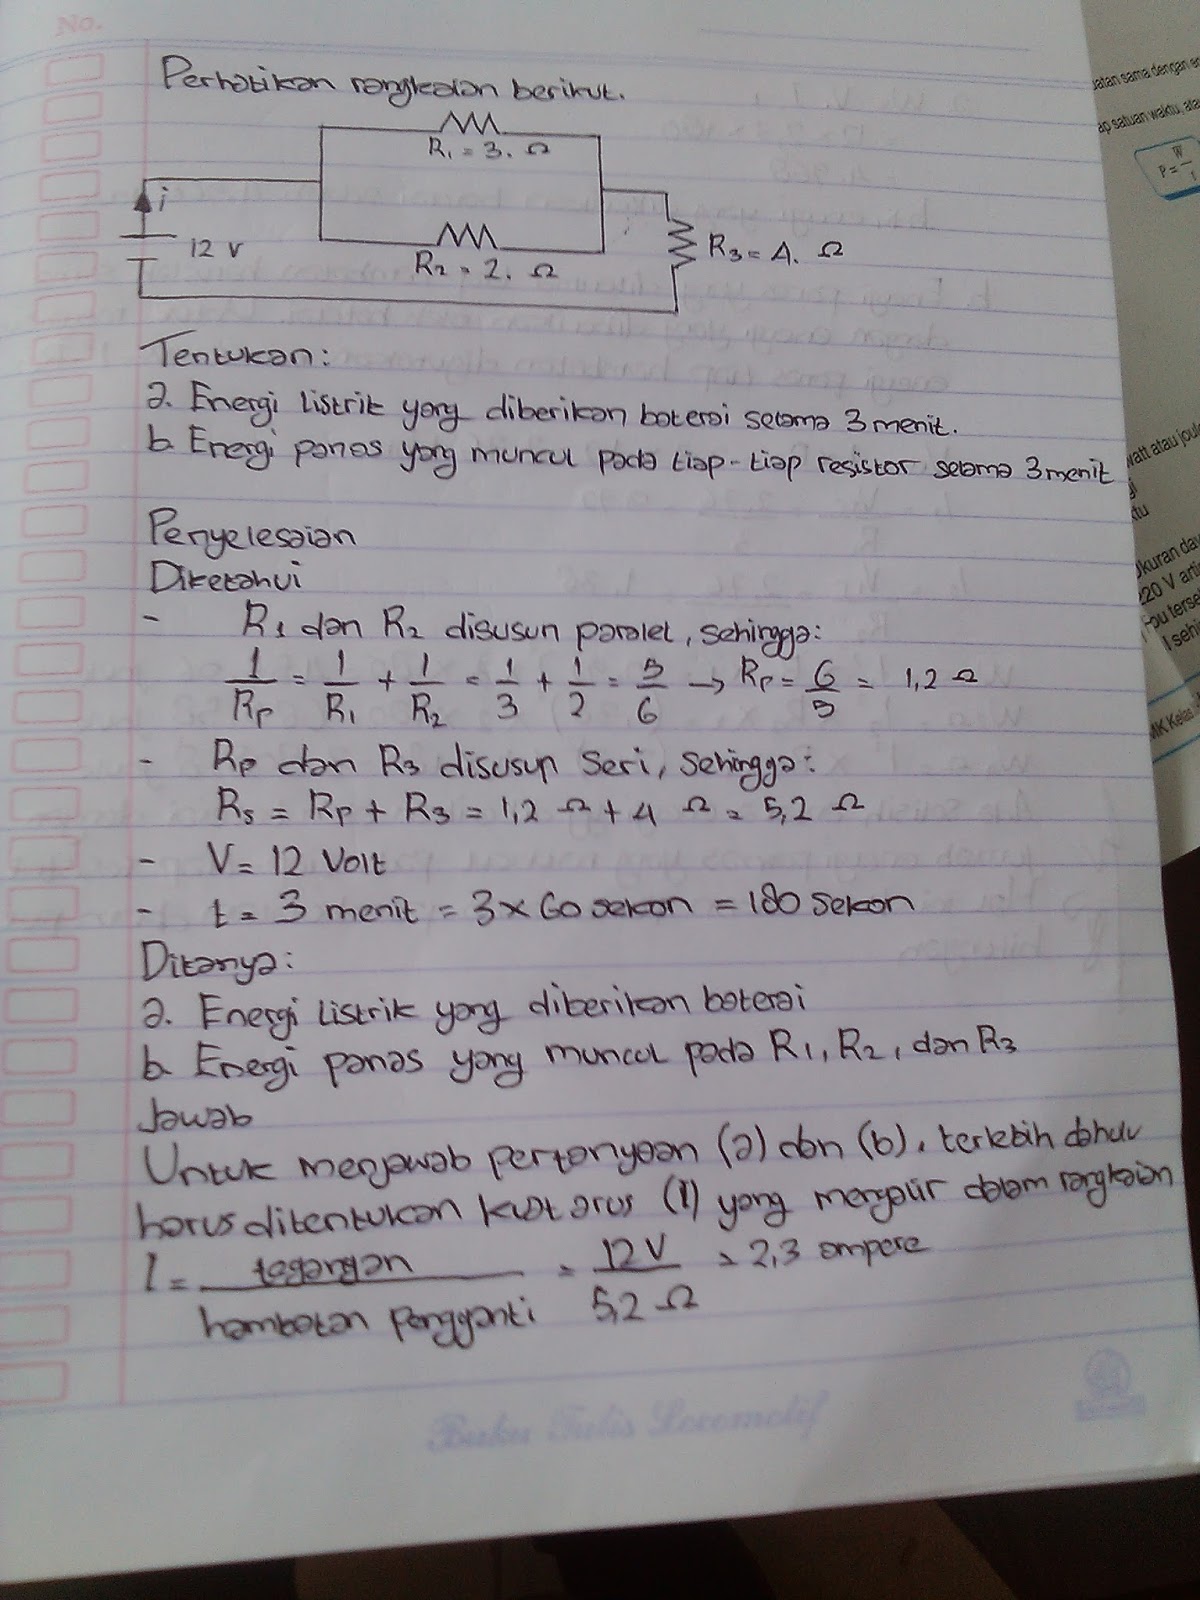 No.
Perhatikan rangkaian berikut.
R1 = 3. Ω
i
12 V
R2 = 2. Ω
R3 = 4. Ω
Tentukan:
a. Energi listrik yang diberikan baterai selama 3 menit.
b. Energi panas yang muncul pada tiap-tiap resistor selama 3 menit
Penyelesaian
Diketahui
- R1 dan R2 disusun paralel, sehingga:
1/Rp = 1/R1 + 1/R2 = 1/3 + 1/2 = 5/6 → Rp = 6/5 = 1,2 Ω
- Rp dan R3 disusun seri, sehingga:
Rs = Rp + R3 = 1,2 Ω + 4 Ω = 5,2 Ω
- V = 12 Volt
- t = 3 menit = 3 x 60 sekon = 180 sekon
Ditanya:
a. Energi listrik yang diberikan baterai
b. Energi panas yang muncul pada R1, R2, dan R3
Jawab
Untuk menjawab pertanyaan (a) dan (b), terlebih dahulu
harus ditentukan kuat arus (I) yang mengalir dalam rangkaian
I = tegangan / hambatan pengganti = 12 V / 5,2 Ω = 2,3 ampere
Buku Tulis Locomotif
uatan sama dengan
ap satuan waktu, ata
P = W/t
watt atau joule
gi
ktu
Ukuran day
220 V arti
MK Kelas